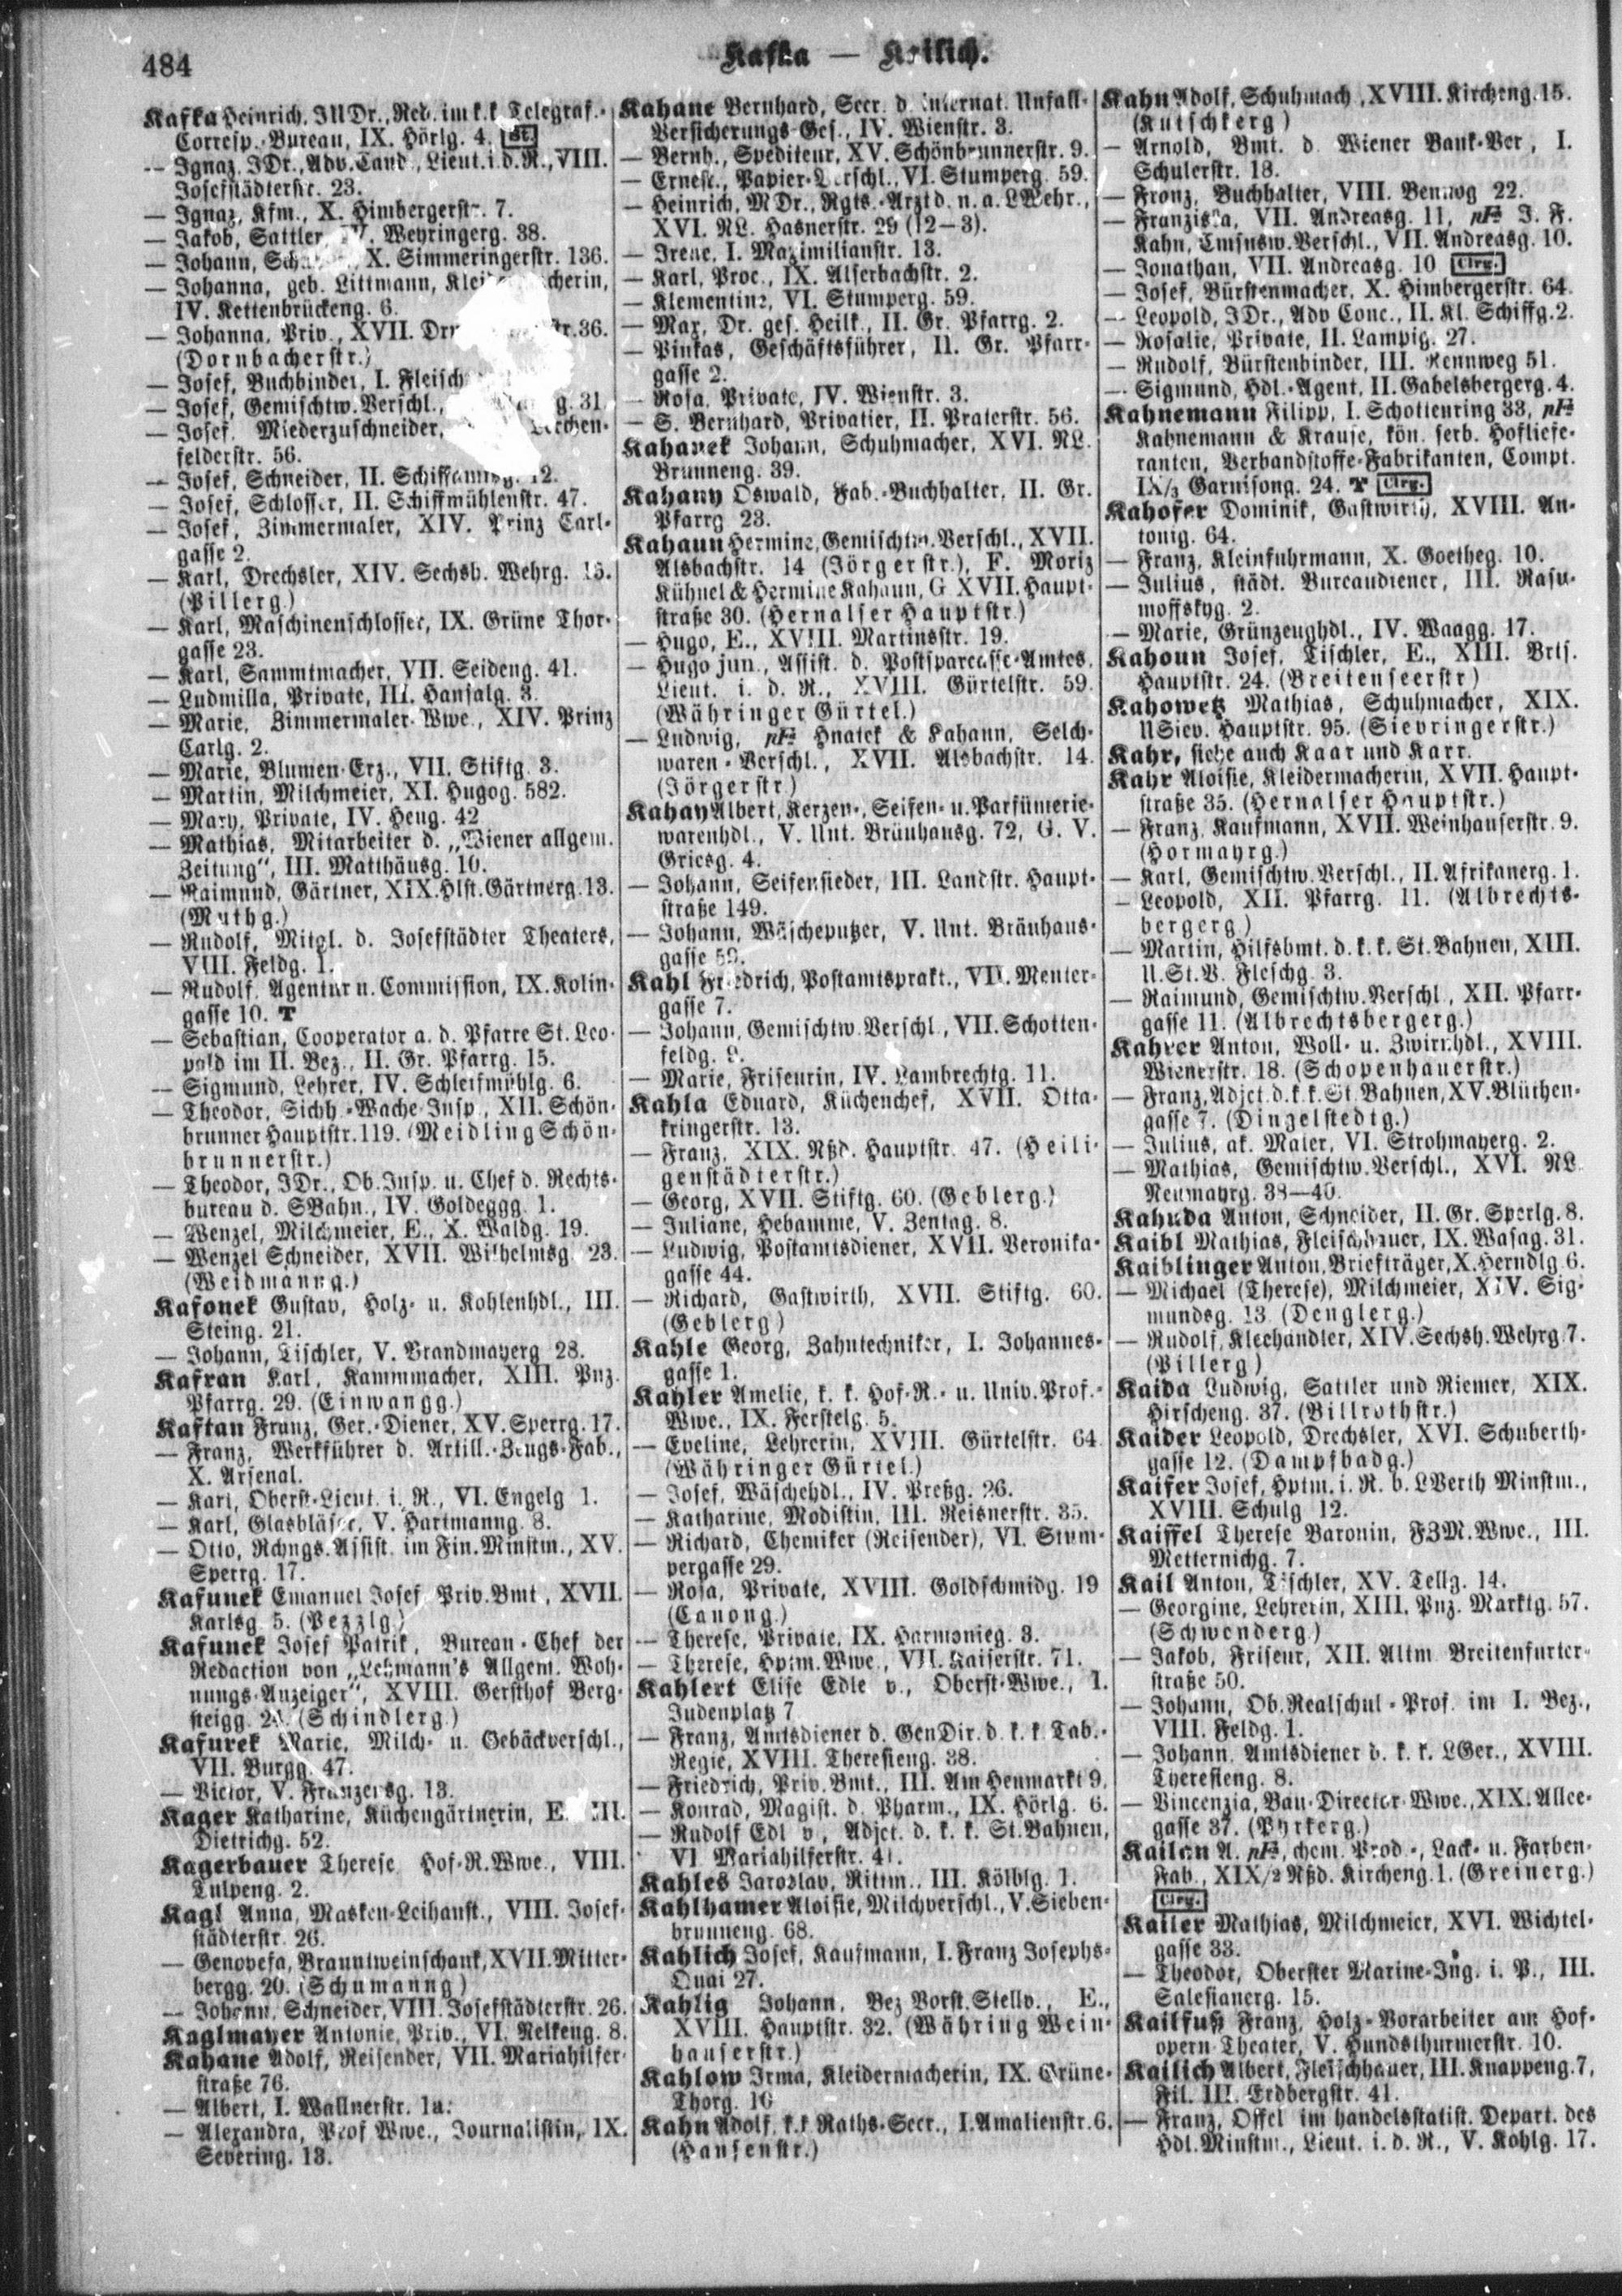 484
Kafka — Kailich.
Kafka Heinrich, JUDr., Red. im k.k. Telegraf.-
Corresp.-Bureau, IX. Hörlg. 4.
— Ignaz, JDr., Adv.Cand., Lieut.i.d.R., VIII.
Josefstädterstr. 23.
— Ignaz, Kfm., X. Himbergerstr. 7.
— Jakob, Sattler, Weyringerg. 38.
— Johann, X. Simmeringerstr. 136.
— Johanna, geb. Littmann,
IV. Kettenbrückeng. 6.
— Johanna, Priv., XVII. 36.
(Dornbacherstr.)
— Josef, Buchbinder, I.
— Josef, Gemischtw.Verschl., 31.
— Josef, Miederzuschneider, Lerchen-
felderstr. 56.
— Josef, Schneider, II. 12.
— Josef, Schlosser, II. Schiffmühlenstr. 47.
— Josef, Zimmermaler, XIV. Prinz Carl-
gasse 2.
— Karl, Drechsler, XIV. Sechsh. Wehrg. 15.
(Pillerg.)
— Karl, Maschinenschlosser, IX. Grüne Thor-
gasse 23.
— Karl, Sammtmacher, VII. Seideng. 41.
— Ludmilla, Private, III. Hansalg. 3.
— Marie, Zimmermaler-Wwe., XIV. Prinz
Carlg. 2.
— Marie, Blumen-Erz., VII. Stiftg. 3.
— Martin, Milchmeier, XI. Hugog. 582.
— Mary, Private, IV. Heug. 42
— Mathias, Mitarbeiter d. „Wiener allgem.
Zeitung“, III. Matthäusg. 10.
— Raimund, Gärtner, XIX.Hlst.Gärtnerg.13.
(Muthg.)
— Rudolf, Mitgl. d. Josefstädter Theaters,
VIII. Feldg. 1.
— Rudolf, Agentur u. Commission, IX. Kolin-
gasse 10. T
— Sebastian, Cooperator a. d. Pfarre St. Leo-
pold im II. Bez., II. Gr. Pfarrg. 15.
— Sigmund, Lehrer, IV. Schleifmühlg. 6.
— Theodor, Sichh.-Wache-Insp., XII. Schön-
brunner Hauptstr. 119. (Meidling Schön-
brunnerstr.)
— Theodor, JDr., Ob.Insp. u. Chef d. Rechts-
bureau d. SBahn., IV. Goldeggg. 1.
— Wenzel, Milchmeier, E., X. Waldg. 19.
— Wenzel Schneider, XVII. Wilhelmsg. 23.
(Weidmanng.)
Kafonek Gustav, Holz- u. Kohlenhdl., III.
Steing. 21.
— Johann, Tischler, V. Brandmayerg 28.
Kafran Karl, Kammmacher, XIII. Pnz.
Pfarrg. 29. (Einwangg.)
Kaftan Franz, Ger.-Diener, XV. Sperrg. 17.
— Franz, Werkführer d. Artill.-Zeugs-Fab.,
X. Arsenal.
— Karl, Oberst-Lieut. i. R., VI. Engelg 1.
— Karl, Glasbläser, V. Hartmanng. 8.
— Otto, Rchngs.Assist. im Fin.Minstm., XV.
Sperrg. 17.
Kafunek Emanuel Josef, Priv.Bmt, XVII.
Karlsg. 5. (Pezzlg.)
Kafunek Josef Patrik, Bureau-Chef der
Redaction von „Lehmann's Allgem. Woh-
nungs-Anzeiger“, XVIII. Gersthof Berg-
steigg. (Schindlerg.)
Kafurek Marie, Milch- u. Gebäckverschl.,
VII. Burgg. 47.
— Victor, V. Franzensg. 13.
Kager Katharine, Küchengärtnerin, E.
Dietrichg. 52.
Kagerbauer Therese Hof-R.Wwe., VIII.
Tulpeng. 2.
Kagl Anna, Masken-Leihanst., VIII. Josef-
städterstr. 26.
— Genovefa, Branntweinschank, XVII. Mitter-
bergg. 20. (Schumanng)
— Johann, Schneider, VIII. Josefstädterstr. 26.
Kaglmayer Antonie, Priv., VI. Nelkeng. 8.
Kahane Adolf, Reisender, VII. Mariahilfer-
straße 76.
— Albert, I. Wallnerstr. 1a.
— Alexandra, Prof Wwe., Journalistin, IX.
Severing. 13.
Kahane Bernhard, Secr. d. internat. Unfall-
Versicherungs-Ges., IV. Wienstr. 3.
— Bernh., Spediteur, XV. Schönbrunnerstr. 9.
— Ernest., Papier-Verschl., VI. Stumperg. 59.
— Heinrich, MDr., Rgts.-Arzt d. n. a. LWehr.,
XVI. NL. Hasnerstr. 29 (12—3).
— Irene, I. Maximilianstr. 13.
— Karl, Proc., IX. Alserbachstr. 2.
— Klementine, VI. Stumperg. 59.
— Max, Dr. ges. Heilk., II. Gr. Pfarrg. 2.
— Pinkas, Geschäftsführer, II. Gr. Pfarr-
gasse 2.
— Rosa, Private, IV. Wienstr. 3.
— S. Bernhard, Privatier, II. Praterstr. 56.
Kahanek Johann, Schuhmacher, XVI. NL.
Brunneng. 39.
Kahany Oswald, Fab.-Buchhalter, II. Gr.
Pfarrg 23.
Kahaun Hermine, Gemischtw.Verschl., XVII.
Alsbachstr. 14 (Jörgerstr.), F. Moriz
Kühnel & Hermine Kahaun, G XVII. Haupt-
straße 30. (Hernalser Hauptstr.)
— Hugo, E., XVIII. Martinsstr. 19.
— Hugo jun., Assist. d. Postsparcasse-Amtes,
Lieut. i. d. R., XVIII. Gürtelstr. 59.
(Währinger Gürtel.)
— Ludwig, pFa Hnatek & Kahann, Selch-
waren-Verschl., XVII. Alsbachstr. 14.
(Jörgerstr.)
Kahay Albert, Kerzen-, Seifen- u. Parfümerie-
warenhdl., V. Unt. Bräuhausg. 72, G. V.
Griesg. 4.
— Johann, Seifensieder, III. Landstr. Haupt-
straße 149.
— Johann, Wäscheputzer, V. Unt. Bräuhaus-
gasse 59.
Kahl Friedrich, Postamtsprakt., VII. Menter-
gasse 7.
— Johann, Gemischtw.Verschl., VII. Schotten-
feldg.
— Marie, Friseurin, IV. Lambrechtg. 11.
Kahla Eduard, Küchenchef, XVII. Otta-
kringerstr. 13.
— Franz, XIX. Nßd. Hauptstr. 47. (Heili-
genstädterstr.)
— Georg, XVII. Stiftg. 60. (Geblerg.)
— Juliane, Hebamme, V. Zentag. 8.
— Ludwig, Postamtsdiener, XVII. Veronika-
gasse 44.
— Richard, Gastwirth, XVII. Stiftg. 60.
(Geblerg)
Kahle Georg, Zahntechniker, I. Johannes-
gasse 1.
Kahler Amelie, k. k. Hof-R.- u. Univ.Prof.-
Wwe., IX. Ferstelg. 5.
— Eveline, Lehrerin, XVIII. Gürtelstr. 64
(Währinger Gürtel.)
— Josef, Wäschehdl., IV. Preßg. 26.
— Katharine, Modistin, III. Reisnerstr. 35.
— Richard, Chemiker (Reisender), VI. Stum-
pergasse 29.
— Rosa, Private, XVIII. Goldschmidg. 19
(Canong.)
— Therese, Private, IX. Harmonieg. 3.
— Therese, Hptm.Wwe., VII. Kaiserstr. 71.
Kahlert Elise Edle v., Oberst-Wwe., I.
Judenplatz 7
— Franz, Amtsdiener d. GenDir. d. k. k. Tab.-
Regie, XVIII. Theresieng. 38.
— Friedrich, Priv.Bmt., III. Am Heumarkt 9.
— Konrad, Magist. d. Pharm., IX. Hörlg. 6.
— Rudolf Edl v, Adjct. d. k. k. St.Bahnen,
VI Mariahilferstr. 41.
Kahles Jaroslav, Rittm., III. Kölblg. 1.
Kahlhamer Aloisie, Milchverschl., V. Sieben-
brunneng. 68.
Kahlich Josef, Kaufmann, I. Franz Josephs-
Quai 27.
Kahlig Johann, Bez Vorst.Stellv., E.,
XVIII. Hauptstr. 32. (Währing Wein-
hauserstr.)
Kahlow Irma, Kleidermacherin, IX. Grüne-
Thorg. 16
Kahn Adolf, k.k Raths-Secr., I. Amalienstr. 6.
(Hansenstr.)
Kahn Adolf, Schuhmach, XVIII. Kircheng. 15.
(Kutschkerg)
— Arnold, Bmt. d Wiener Bank-Ver, I.
Schulerstr. 18.
— Franz, Buchhalter, VIII. Bennog 22.
— Franziska, VII. Andreasg. 11, pFa J. F.
Kahn, Cmsnsw.Verschl., VII. Andreasg. 10.
— Jonathan, VII. Andreasg. 10 Clrg.
— Josef, Bürstenmacher, X. Himbergerstr. 64.
— Leopold, JDr., Adv Conc., II. Kl. Schiffg. 2.
— Rosalie, Private, II. Lampig. 27.
— Rudolf, Bürstenbinder, III. Rennweg 51.
— Sigmund, Hdl.-Agent, II. Gabelsbergerg. 4.
Kahnemann Filipp, I. Schottenring 33, pFa
Kahnemann & Krause, kön. serb. Hofliefe-
ranten, Verbandstoffe-Fabrikanten, Compt.
IX/3 Garnisong. 24. T Clrg.
Kahofer Dominik, Gastwirth, XVIII. An-
tonig. 64.
— Franz, Kleinfuhrmann, X. Goetheg. 10.
— Julius, städt. Bureaudiener, III. Rasu-
moffskyg. 2.
— Marie, Grünzeughdl., IV. Waagg. 17.
Kahoun Josef, Tischler, E., XIII. Brts.
Hauptstr. 24. (Breitenseerstr)
Kahowetz Mathias, Schuhmacher, XIX.
USiev. Hauptstr. 95. (Sievringerstr.)
Kahr, siehe auch Kaar und Karr.
Kahr Aloisie, Kleidermacherin, XVII. Haupt-
straße 35. (Hernalser Hauptstr.)
— Franz, Kaufmann, XVII. Weinhauserstr. 9.
(Hormayrg.)
— Karl, Gemischtw.Verschl., II. Afrikanerg. 1.
— Leopold, XII. Pfarrg. 11. (Albrechts-
bergerg)
— Martin, Hilfsbmt. d. k. k. St.Bahnen, XIII.
U.St.V. Fleschg. 3.
— Raimund, Gemischtw.Verschl, XII. Pfarr-
gasse 11. (Albrechtsbergerg.)
Kahrer Anton, Woll- u. Zwirnhdl., XVIII.
Wienerstr. 18. (Schopenhauerstr.)
— Franz, Adjct. d. k. k. St.Bahnen, XV. Blüthen-
gasse 7. (Dingelstedtg.)
— Julius, ak. Maler, VI. Strohmayerg. 2.
— Mathias, Gemischtw.Verschl., XVI. NL
Neumayrg. 38—40.
Kahuda Anton, Schneider, II. Gr. Sperlg. 8.
Kaibl Mathias, Fleischhauer, IX. Wasag. 31.
Kaiblinger Anton, Briefträger, X. Herndlg 6.
— Michael (Therese), Milchmeier, XIV. Sig-
mundsg. 13 (Denglerg.)
— Rudolf, Kleehändler, XIV. Sechsh. Wehrg 7.
(Pillerg)
Kaida Ludwig, Sattler und Riemer, XIX.
Hirscheng. 37. (Billrothstr.)
Kaider Leopold, Drechsler, XVI. Schuberth-
gasse 12. (Dampfbadg.)
Kaifer Josef, Hptm. i. R. b. LVerth Minstm.,
XVIII. Schulg 12.
Kaiffel Therese Baronin, FZM.Wwe., III.
Metternichg. 7.
Kail Anton, Tischler, XV. Tellg. 14.
— Georgine, Lehrerin, XIII. Pnz. Marktg. 57.
(Schwenderg.)
— Jakob, Friseur, XII. Altm Breitenfurter-
straße 50.
— Johann, Ob.Realschul-Prof. im I. Bez.,
VIII. Feldg. 1.
— Johann, Amtsdiener d. k. k. LGer., XVIII.
Theresieng. 8.
— Vincenzia, Bau-Director-Wwe., XIX. Allee-
gasse 37. (Pyrkerg.)
Kailan A. pFa, chem. Prod.-, Lack- u. Farben-
Fab., XIX/2 Nßd. Kircheng. 1. (Greinerg.)
Clrg.
Kailer Mathias, Milchmeier, XVI. Wichtel-
gasse 33.
— Theodor, Oberster Marine-Ing. i. P., III.
Salesianerg. 15.
Kailfuß Franz, Holz-Vorarbeiter am Hof-
opern-Theater, V. Hundsthurmerstr. 10.
Kailich Albert, Fleischhauer, III. Knappeng. 7,
Fil. III. Erdbergstr. 41.
— Franz, Offcl im handelsstatist. Depart. des
Hdl.Minstm., Lieut. i. d. R., V. Kohlg. 17.